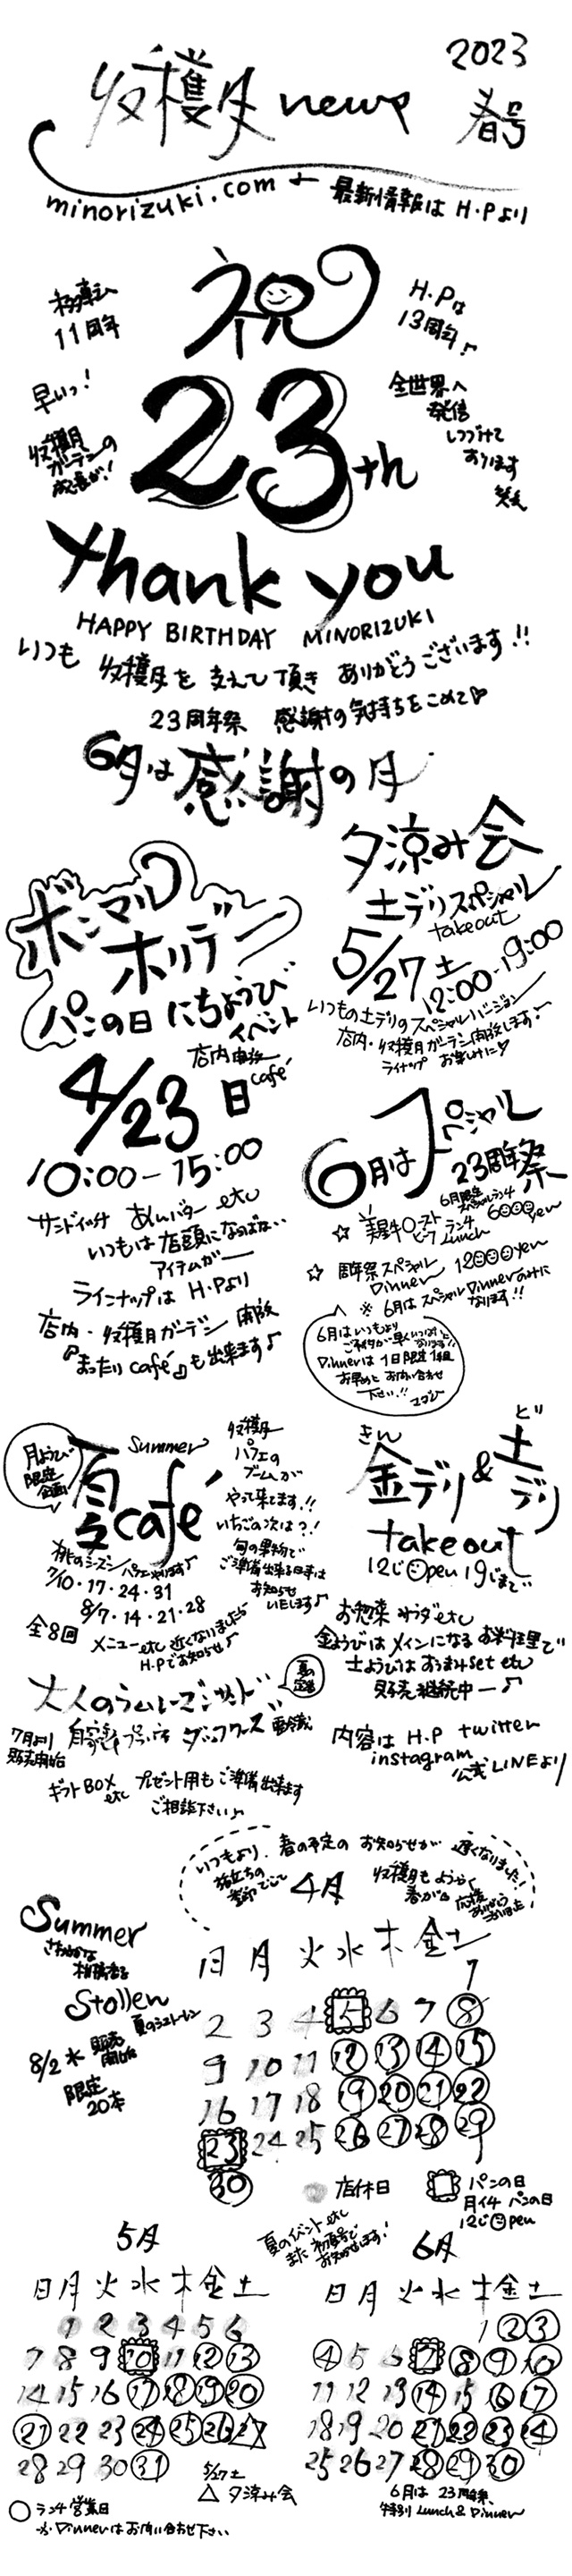 2023
収穫月 news 春号
minorizuki.com ← 最新情報は H・Pより
祝
11周年
H・Pは
13周年♪
早いっ!
全世界へ
発信
しつづけて
おります
笑
収穫月
ガーデンの
成長が!
23th
Thank you
HAPPY BIRTHDAY MINORIZUKI
いつも 収穫月を 支えて頂き ありがとうございます!!
23周年祭 感謝の気持ちをこめて♡
6月は感謝の月
夕涼み会
土デリスペシャル
takeout
5/27土
12:00-19:00
いつもの土デリのスペシャルバージョン
店内・収穫月ガーデン開放します!
ラインナップ お楽しみに♡
ボンマルシェ
ホリデー
パンの日 にちようび
イベント
店内開放
café
4/23日
10:00-15:00
サンドイッチ あんバター etc
いつもは店頭にならばない
アイテムがー
ラインナップは H・Pより
店内・収穫月ガーデン開放
『まったりcafé』も出来ます♪
6月はスペシャル
23周年祭
6月限定
スペシャルランチ
☆ 美星牛ローストビーフランチ Lunch 6000yen
☆ 周年祭スペシャル Dinner 12000yen
※ 6月は スペシャル Dinnerのみに
なります!!
6月はいつもより
Dinnerは 1日限定1組
お早めに お問い合わせ
下さい!!
月ようび
限定
企画!
Summer
夏café
収穫月
パフェの
ブームが
やって来てます!!
いちごの次は?!
旬の果物で
ご準備出来る日は
お知らせ
いたします♪
桃のシーズン パフェやります♪
7/10・17・24・31
8/7・14・21・28
全8回 メニューetc 近くなりましたら
H・Pでお知らせ♪
きん ど
金デリ & 土デリ
takeout
12じOpen 19じまで
お惣菜 サラダetc
金ようびは メインになる お料理で
土ようびは おつまみset etc
販売継続中ー♪
内容は H.P twitter
instagram
公式LINEより
大人のラムレーズンサンド
夏の
定番
7月より
販売開始
ダックワーズ 要冷蔵
ギフトBOX etc プレゼント用も ご準備出来ます
ご相談下さい♪
いつもより、春の予定の お知らせが 遅くなりました!
収穫月も ようやく
春が
Summer
Stollen
夏のシュトーレン
8/2水 販売
開始
限定
20本
4月
日 月 火 水 木 金 土
1
2 3 4 5 6 7 8
9 10 11 12 13 14 15
16 17 18 19 20 21 22
23 24 25 26 27 28 29
30
店休日
パンの日
月イチ パンの日
12じOpen
夏のイベントetc
また 初夏号で
お知らせします!
5月
日 月 火 水 木 金 土
1 2 3 4 5 6
7 8 9 10 11 12 13
14 15 16 17 18 19 20
21 22 23 24 25 26 27
28 29 30 31
5/27土
△ 夕涼み会
○ ランチ営業日
※ Dinnerはお問い合わせ下さい
6月
日 月 火 水 木 金 土
1 2 3
4 5 6 7 8 9 10
11 12 13 14 15 16 17
18 19 20 21 22 23 24
25 26 27 28 29 30
6月は 23周年祭、
特別 Lunch & Dinner